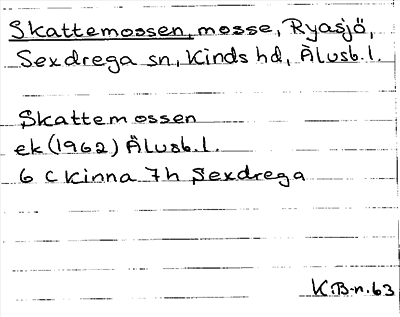 Skattemossen, mosse, Ryasjö,
Sexdrega sn, Kinds hd, Älvsb.l.
Skattemossen
ek (1962) Älvsb.l.
6 C Kinna 7h Sexdrega
K.B-n.63